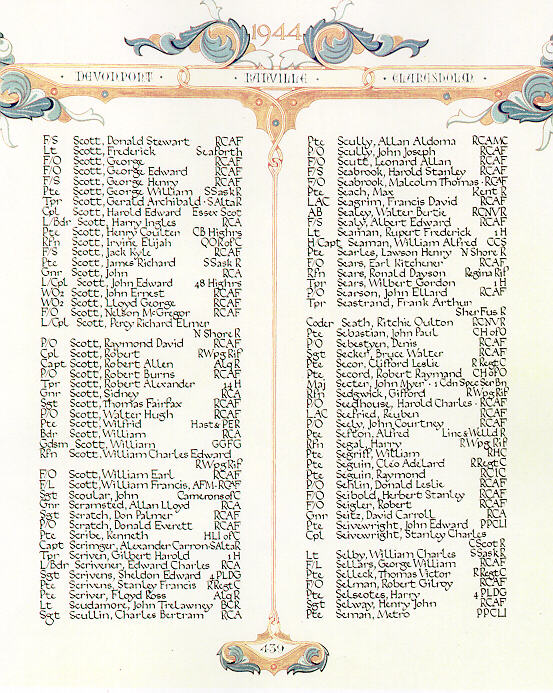 1944
DEVONPORT · RANVILLE · CLARESHOLM
F/S Scott, Donald Stewart RCAF
Lt Scott, Frederick Seaforth
F/O Scott, George RCAF
F/O Scott, George Edward RCAF
F/S Scott, George Henry RCAF
Pte Scott, George William SSaskR
Tpr Scott, Gerald Archibald · SAltaR
Cpl Scott, Harold Edward Essex Scot
L/Bdr Scott, Harry Ingles RCA
Pte Scott, Henry Coulter CB Highrs
Rfn Scott, Irvine Elijah QORofC
F/S Scott, Jack Kyle RCAF
Pte Scott, James Richard SSaskR
Gnr Scott, John RCA
L/Cpl Scott, John Edward 48 Highrs
WO2 Scott, John Ernest RCAF
WO2 Scott, Lloyd George RCAF
F/O Scott, Nelson McGregor RCAF
L/Cpl Scott, Percy Richard Elmer
N Shore R
P/O Scott, Raymond David RCAF
Cpl Scott, Robert RWpgRif
Capt Scott, Robert Allen AlqR
P/O Scott, Robert Burns RCAF
Tpr Scott, Robert Alexander 14H
Gnr Scott, Sidney RCA
Sgt Scott, Thomas Fairfax RCAF
P/O Scott, Walter Hugh RCAF
Pte Scott, Wilfrid Hast&PER
Bdr Scott, William RCA
Gdsm Scott, William GGFG
Rfn Scott, William Charles Edward
RWpgRif
F/O Scott, William Earl RCAF
F/L Scott, William Francis, AFM-RCAF
Sgt Scoular, John CameronsofC
Gnr Scramsted, Allan Lloyd RCA
Sgt Scratch, Don Palmer RCAF
P/O Scratch, Donald Everett RCAF
Pte Scribe, Kenneth HLIofC
Capt Scrimger, Alexander Carron·SAltaR
Tpr Scriven, Gilbert Harold 1H
L/Bdr Scrivener, Edward Charles RCA
Sgt Scrivens, Sheldon Edward 4PLDG
Pte Scrivens, Stanley Francis RRegtC
Pte Scriver, Floyd Ross AlqR
Lt Scudamore, John Trelawney BCR
Sgt Scullin, Charles Bertram RCA
Pte Scully, Allan Aldoma RCAMC
P/O Scully, John Joseph RCAF
F/O Scutt, Leonard Allan RCAF
F/S Seabrook, Harold Stanley RCAF
F/O Seabrook, Malcolm Thomas · RCAF
Pte Seach, Max Kent R
LAC Seagrim, Francis David RCAF
AB Sealey, Walter Bertie RCNVR
F/S Sealy, Albert Edward RCAF
Lt Seaman, Rupert Frederick 1H
H/Capt Seaman, William Alfred CCS
Pte Searles, Lawson Henry N Shore R
F/O Sears, Earl Kitchener RCAF
Rfn Sears, Ronald Dayson Regina Rif
Tpr Sears, Wilbert Gordon 1H
P/O Searson, John Ellard RCAF
Tpr Seastrand, Frank Arthur
SherFusR
Coder Seath, Ritchie Oulton RCNVR
Pte Sebastian, John Paul CHofO
P/O Sebestyen, Denis RCAF
Sgt Secker, Bruce Walter RCAF
Pte Secor, Clifford Leslie RRegtC
Pte Secord, Robert Raymand CHofO
Maj Secter, John Myer · 1CdnSpecSerBn
Rfn Sedgwick, Gifford RWpgRif
P/O Seedhouse, Harold Charles · RCAF
LAC Seefried, Reuben RCAF
P/O Seely, John Courtney RCAF
Pte Sefton, Alfred Linc&WelldR
Rfn Segal, Harry RWpgRif
Pte Segriff, William RHC
Pte Seguin, Cleo Adelard RRegtC
Pte Seguin, Raymond RCIC
P/O Sehlin, Donald Leslie RCAF
F/O Seibold, Herbert Stanley RCAF
F/O Seigler, Robert RCAF
Gnr Seitz, David Carroll RCA
Pte Seivewright, John Edward PPCLI
Cpl Seivewright, Stanley Charles
CScotR
Lt Selby, William Charles SSaskR
F/L Sellars, George William RCAF
Pte Selleck, Thomas Victor RRegtC
F/O Selman, Robert Gilroy RCAF
Pte Selseotes, Harry 4PLDG
Sgt Selway, Henry John RCAF
Pte Seman, Metro PPCLI
439